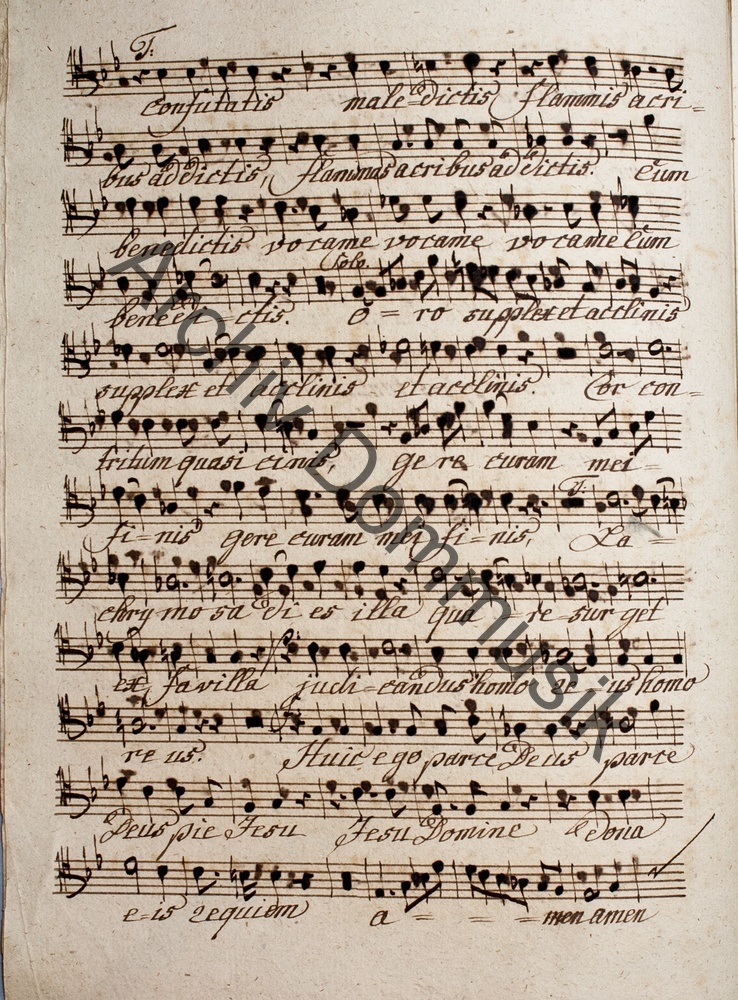 T:
confutatis male=dictis flammis acri=
bus addictis, flammas acribus addictis. Cum
benedictis vocame vocame vocame Cum
Solo.
benedi=ctis. O=ro supplex et acclinis
supplex et acclinis et acclinis. Cor con=
tritum quasi cinis, gere curam mei=
T:
fi=nis gere curam mei fi=nis, La=
chrymosa di es illa qua re=sur get
ex favilla judi=candus homo re=us homo
re us. Huic ego parce Deus parce
Deus pie Iesu Iesu Domine dona
e=is requiem a===men amen
Archiv Dommusik